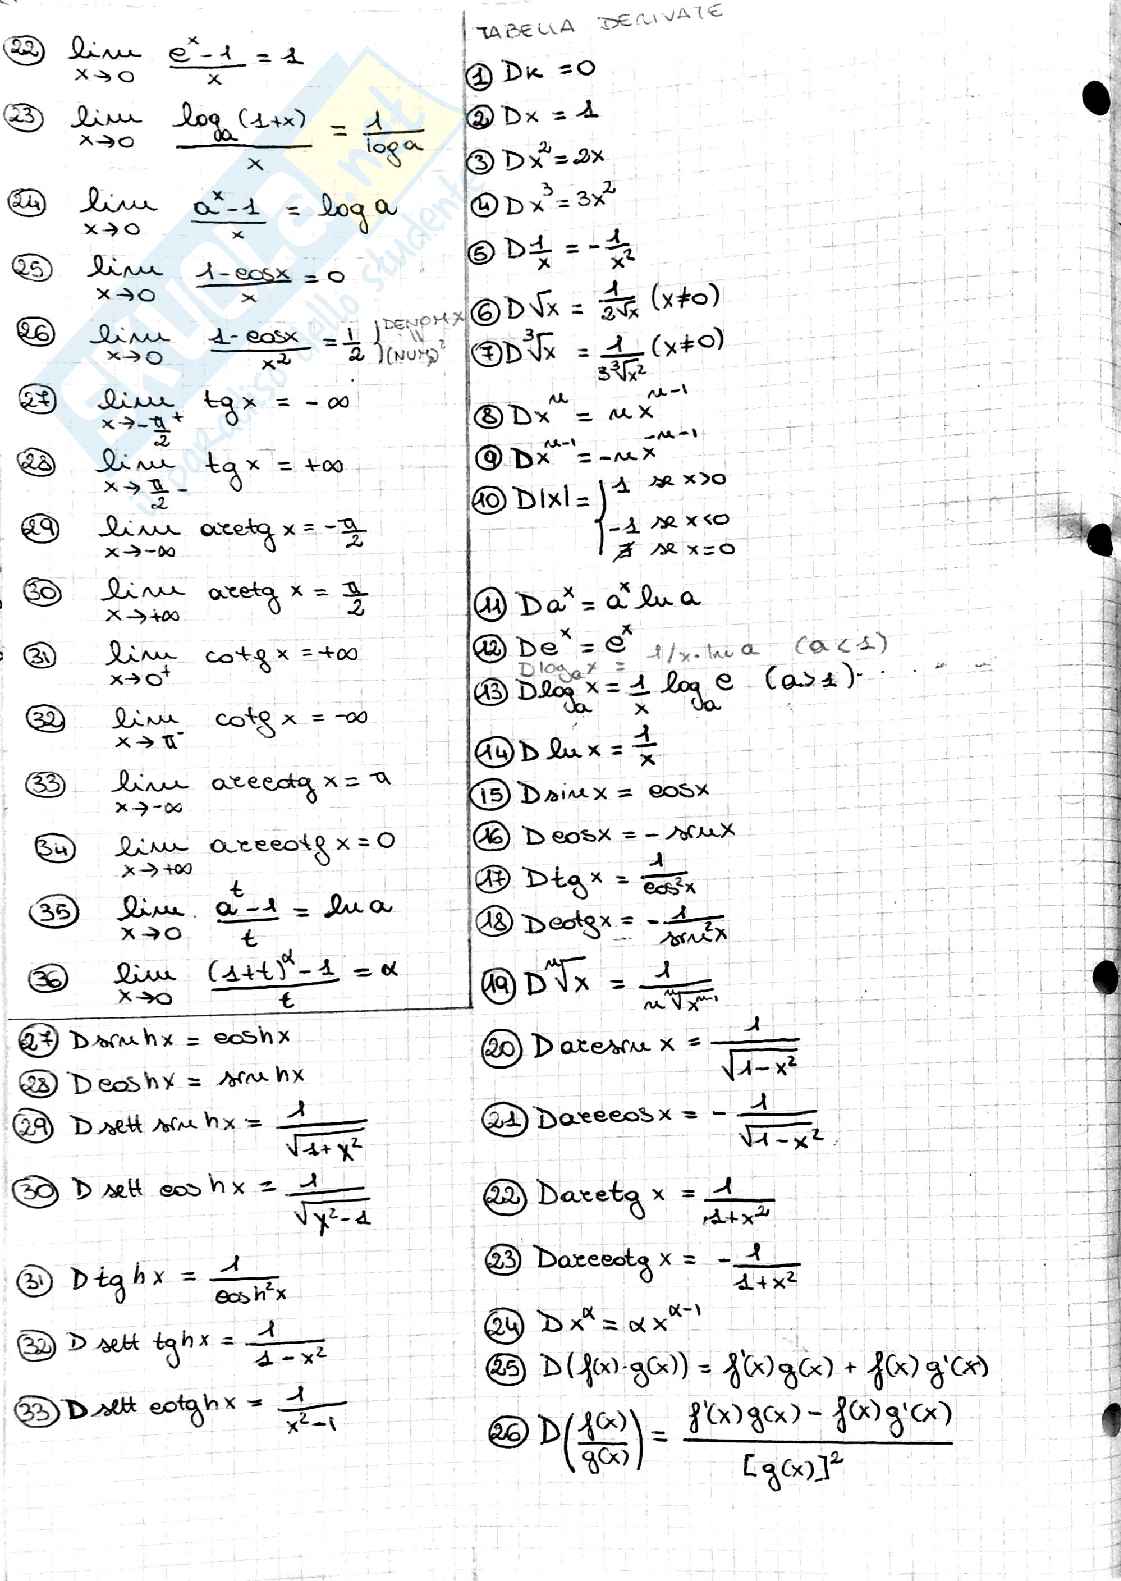 (22) lim x→0 (e^x - 1)/x = 1
(23) lim x→0 log_a (1+x)/x = 1/log a
(24) lim x→0 (a^x - 1)/x = log a
(25) lim x→0 (1 - cosx)/x = 0
(26) lim x→0 (1 - cosx)/x² = 1/2 } DENOM X (NUM)²
(27) lim x→-π/2⁺ tg x = -∞
(28) lim x→π/2⁻ tg x = +∞
(29) lim x→-∞ arctg x = -π/2
(30) lim x→+∞ arctg x = π/2
(31) lim x→0⁺ cotg x = +∞
(32) lim x→π⁻ cotg x = -∞
(33) lim x→-∞ arccotg x = π
(34) lim x→+∞ arccotg x = 0
(35) lim x→0 (a^t - 1)/t = ln a
(36) lim x→0 ((1+t)^α - 1)/t = α
TABELLA DERIVATE
(1) Dk = 0
(2) Dx = 1
(3) Dx² = 2x
(4) Dx³ = 3x²
(5) D 1/x = - 1/x²
(6) D√x = 1/(2√x) (x≠0)
(7) D ³√x = 1/(3 ³√x²) (x≠0)
(8) Dx^n = n x^(n-1)
(9) Dx^(n-1) = -n x^(-n-1)
(10) D|x| = { 1 se x>0
-1 se x<0
∄ se x=0
(11) Da^x = a^x ln a
(12) De^x = e^x
D log_a x = 1/x · ln a (a<1)
(13) D log_a x = 1/x log_a e (a>1)
(14) D ln x = 1/x
(15) D sinx = cosx
(16) D cosx = - sinx
(17) D tg x = 1/cos²x
(18) D cotg x = - 1/sin²x
(19) D ⁿ√x = 1/(n ⁿ√x^(n-1))
(20) D arcsin x = 1/√(1-x²)
(21) D arccos x = - 1/√(1-x²)
(22) D arctg x = 1/(1+x²)
(23) D arccotg x = - 1/(1+x²)
(24) Dx^α = αx^(α-1)
(25) D(f(x)·g(x)) = f'(x)g(x) + f(x)g'(x)
(26) D(f(x)/g(x)) = (f'(x)g(x) - f(x)g'(x))/[g(x)]²
(27) D sin hx = cos hx
(28) D cos hx = sin hx
(29) D sett sin hx = 1/√(1+x²)
(30) D sett cos hx = 1/√(x²-1)
(31) D tg hx = 1/cosh²x
(32) D sett tghx = 1/(1-x²)
(33) D sett cotghx = 1/(x²-1)
SKUOLA.net
il paradiso dello studente